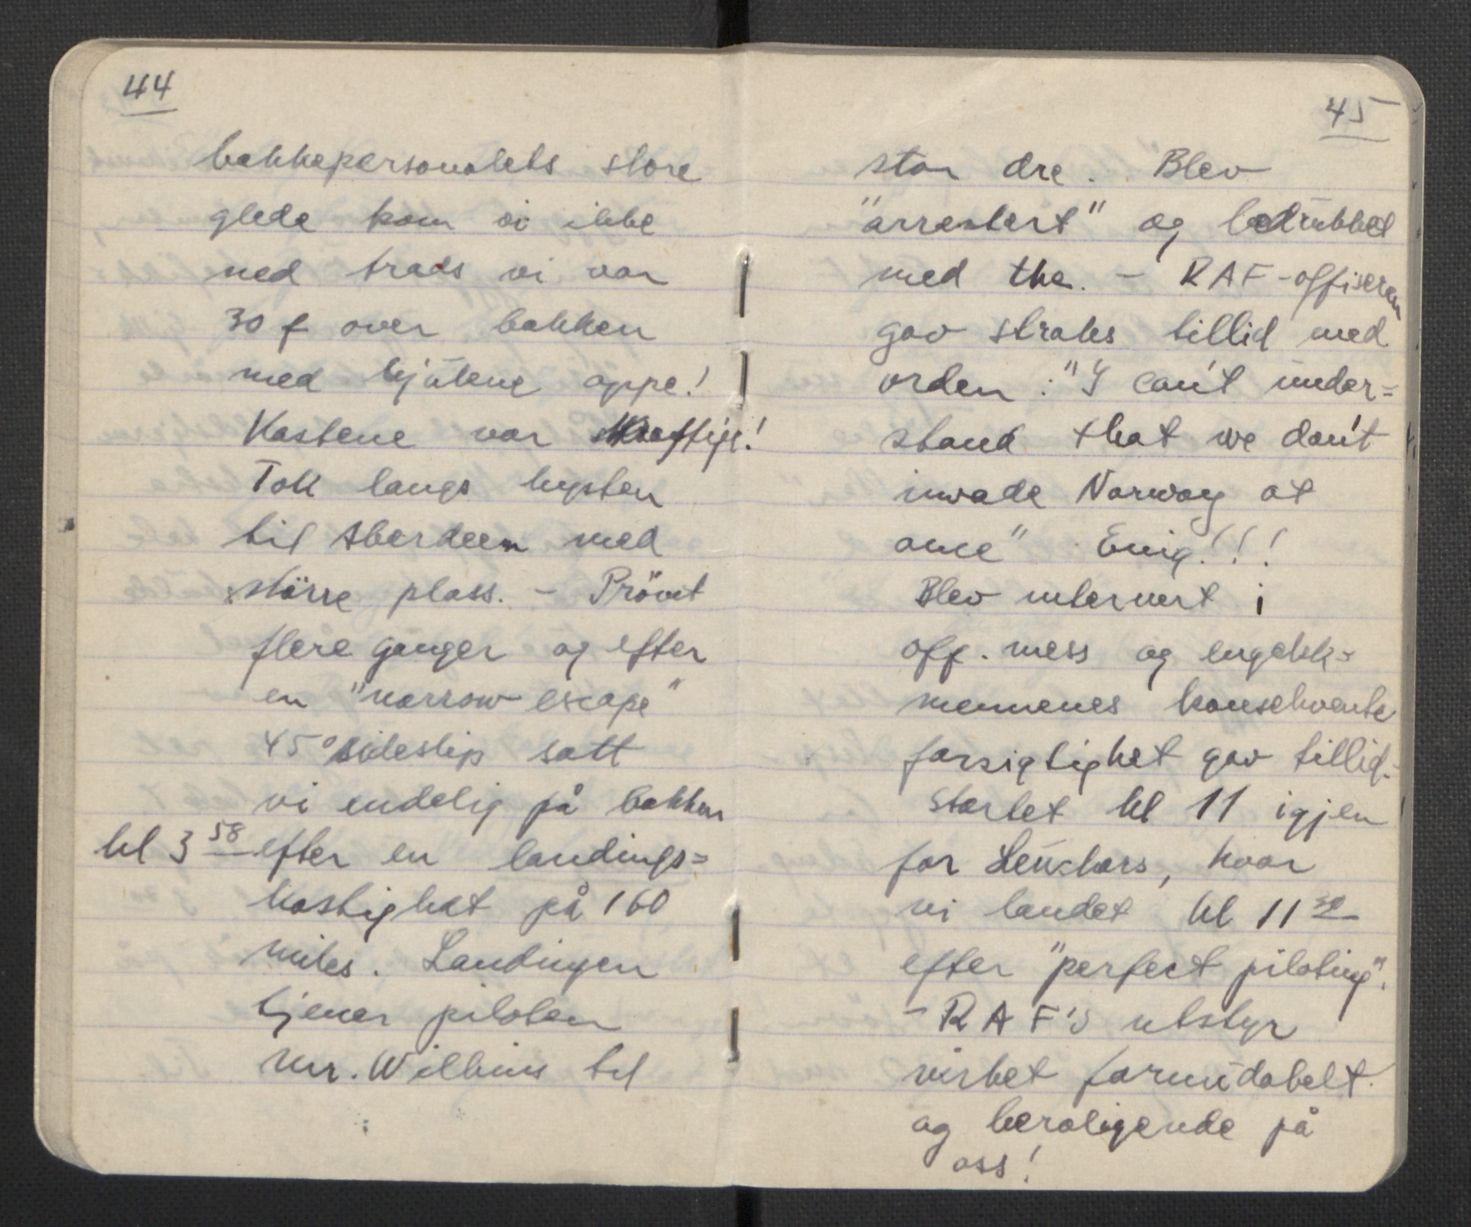 44
bakkepersonalets store
glede kom vi ikke
ned trods vi var
30 f over bakken
med hjulene oppe!
Kastene var kraftige!
Tok langs kysten
til Aberdeen med
større plass. - Prövet
flere ganger og efter
en "narrow escape"
45° sideslip satt
vi endelig på bakken
kl 3 58 efter en landings=
hastighet på 160
miles. Landingen
tjener piloten
mr. Wilkins til
45
stor ære. Blev
"arrestert" og
med the. - RAF-offiseren
gav straks tillid med
orden: "I can't under=
stand that we don't
invade Norway at
once" Enig!!!
Blev internert i
off. mess og engelsk=
mennenes konsekvente
forsigtighet gav tillid.
Startet kl 11 igjen
for Leuchars, hvor
vi landet kl 11 30
efter "perfect piloting".
- RAF's utstyr
virket formidabelt
og beroligende på
oss!